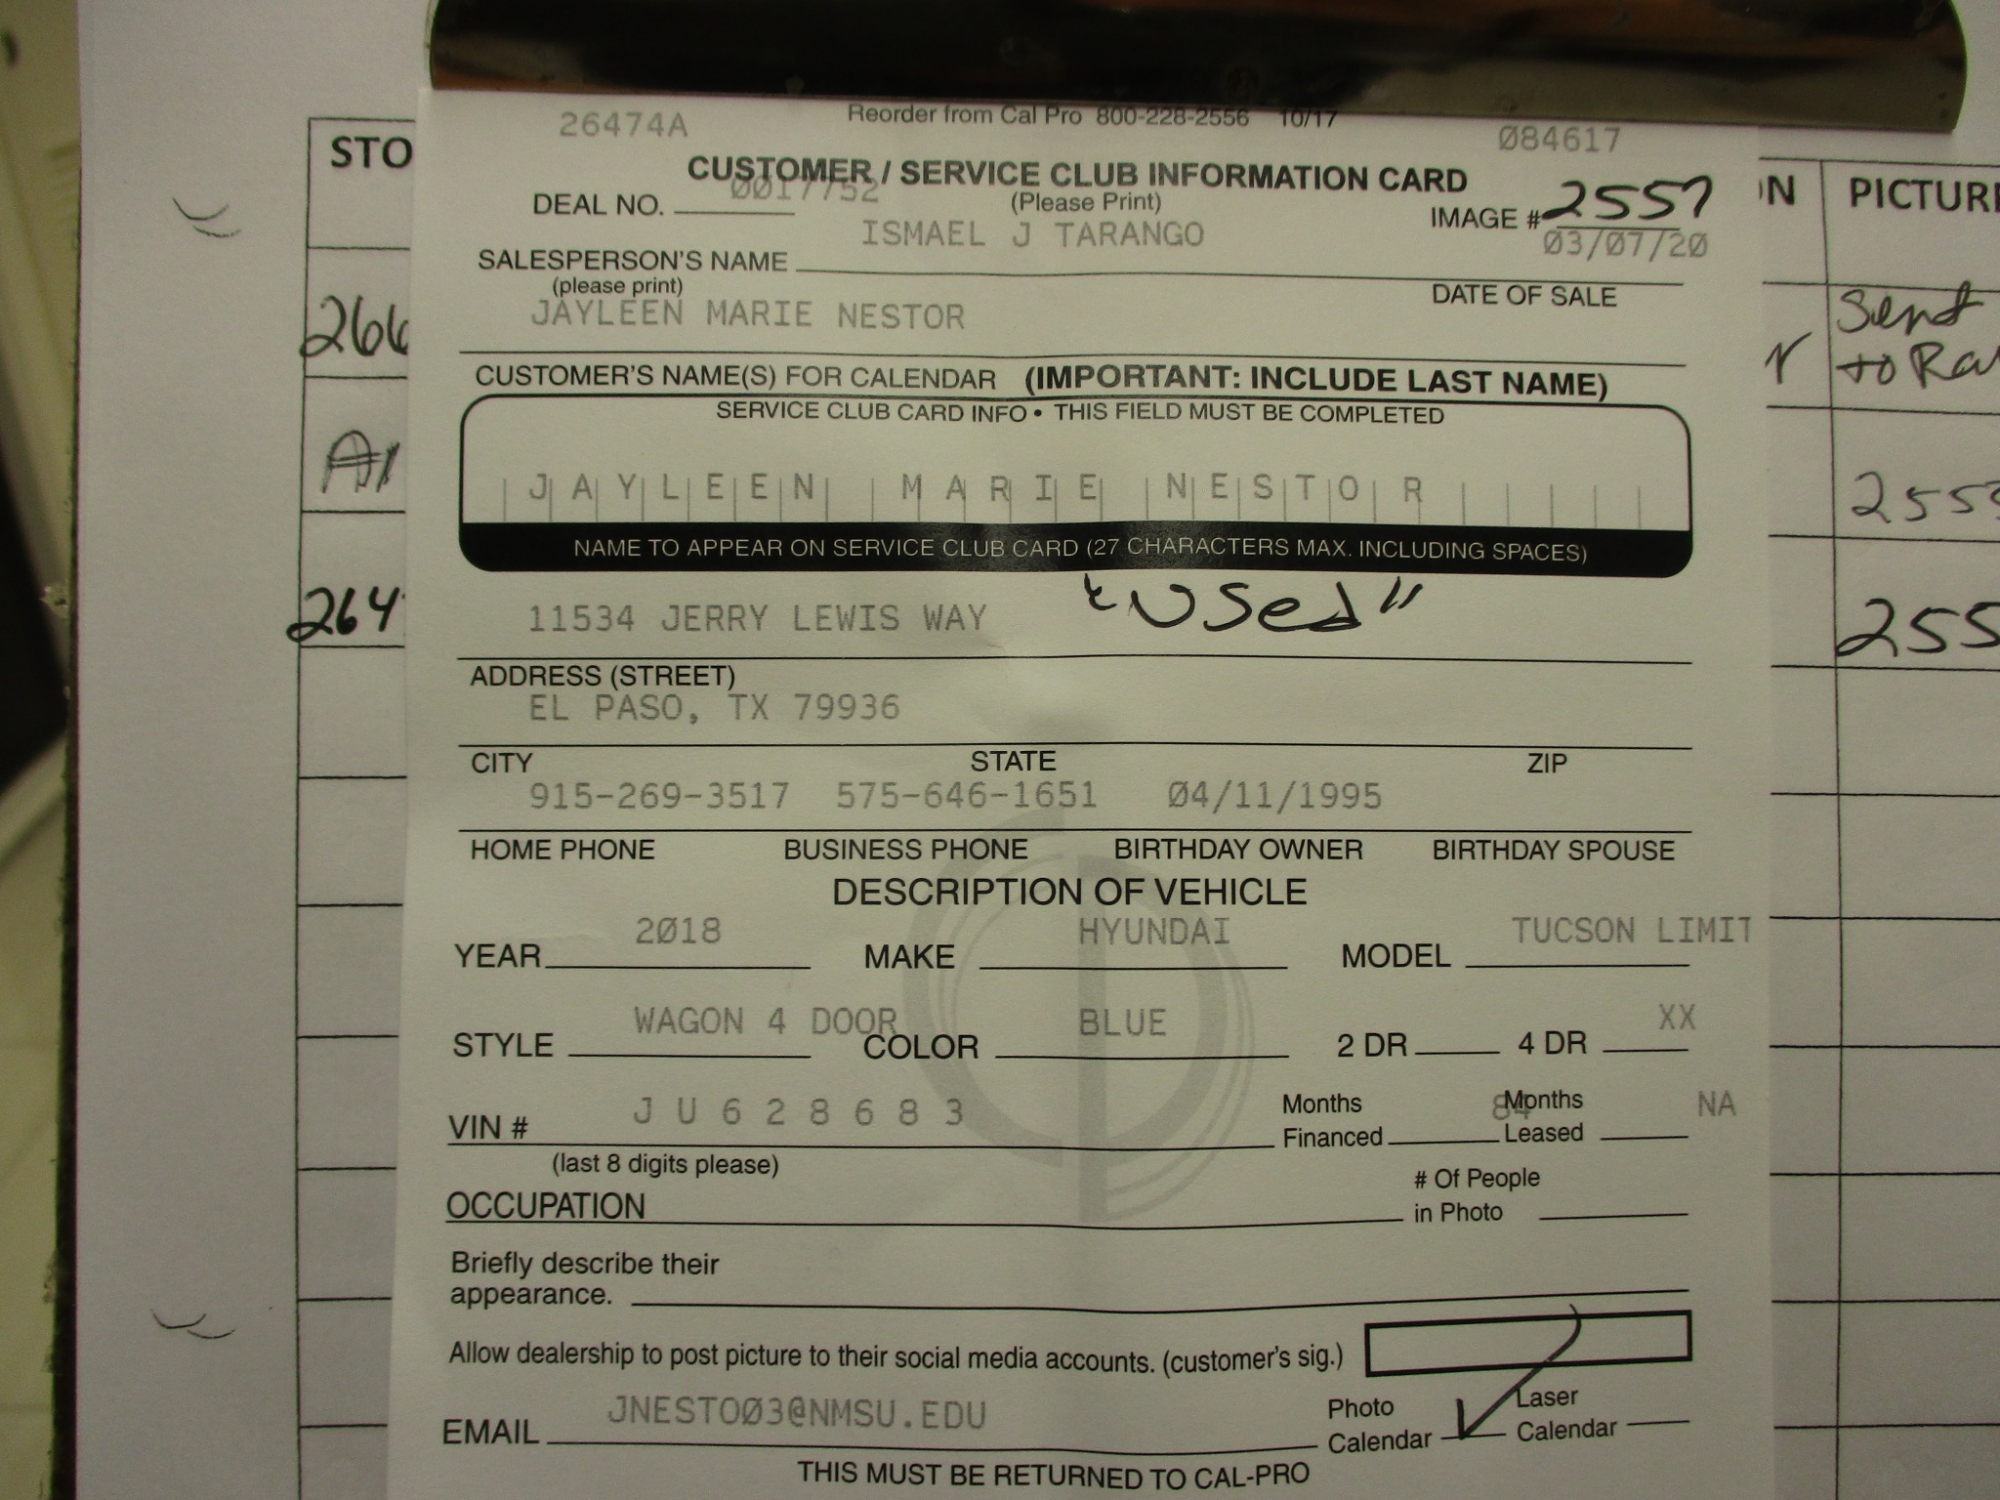 Reorder from Cal Pro 800-228-2556 10/17
26474A
Ø84617
CUSTOMER / SERVICE CLUB INFORMATION CARD
DEAL NO. ØØ17752
(Please Print)
IMAGE # 2557
ISMAEL J TARANGO
Ø3/Ø7/2Ø
SALESPERSON'S NAME
(please print)
DATE OF SALE
JAYLEEN MARIE NESTOR
CUSTOMER'S NAME(S) FOR CALENDAR (IMPORTANT: INCLUDE LAST NAME)
SERVICE CLUB CARD INFO • THIS FIELD MUST BE COMPLETED
JAYLEEN MARIE NESTOR
NAME TO APPEAR ON SERVICE CLUB CARD (27 CHARACTERS MAX. INCLUDING SPACES)
11534 JERRY LEWIS WAY "Used"
ADDRESS (STREET)
EL PASO, TX 79936
CITY STATE ZIP
915-269-3517 575-646-1651 Ø4/11/1995
HOME PHONE BUSINESS PHONE BIRTHDAY OWNER BIRTHDAY SPOUSE
DESCRIPTION OF VEHICLE
YEAR 2Ø18 MAKE HYUNDAI MODEL TUCSON LIMIT
STYLE WAGON 4 DOOR COLOR BLUE 2 DR 4 DR XX
VIN # J U 6 2 8 6 8 3 Months Financed 84 Months Leased NA
(last 8 digits please)
OCCUPATION # Of People in Photo
Briefly describe their
appearance.
Allow dealership to post picture to their social media accounts. (customer's sig.)
EMAIL JNESTOØ3@NMSU.EDU Photo Calendar Laser Calendar
THIS MUST BE RETURNED TO CAL-PRO
STO
266
264
PICTUR
Sent
to
255
255